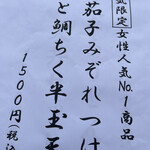 気限定女性人気No.1商品
茄子みぞれつけ
と鯛ちく半玉天
1500円税込